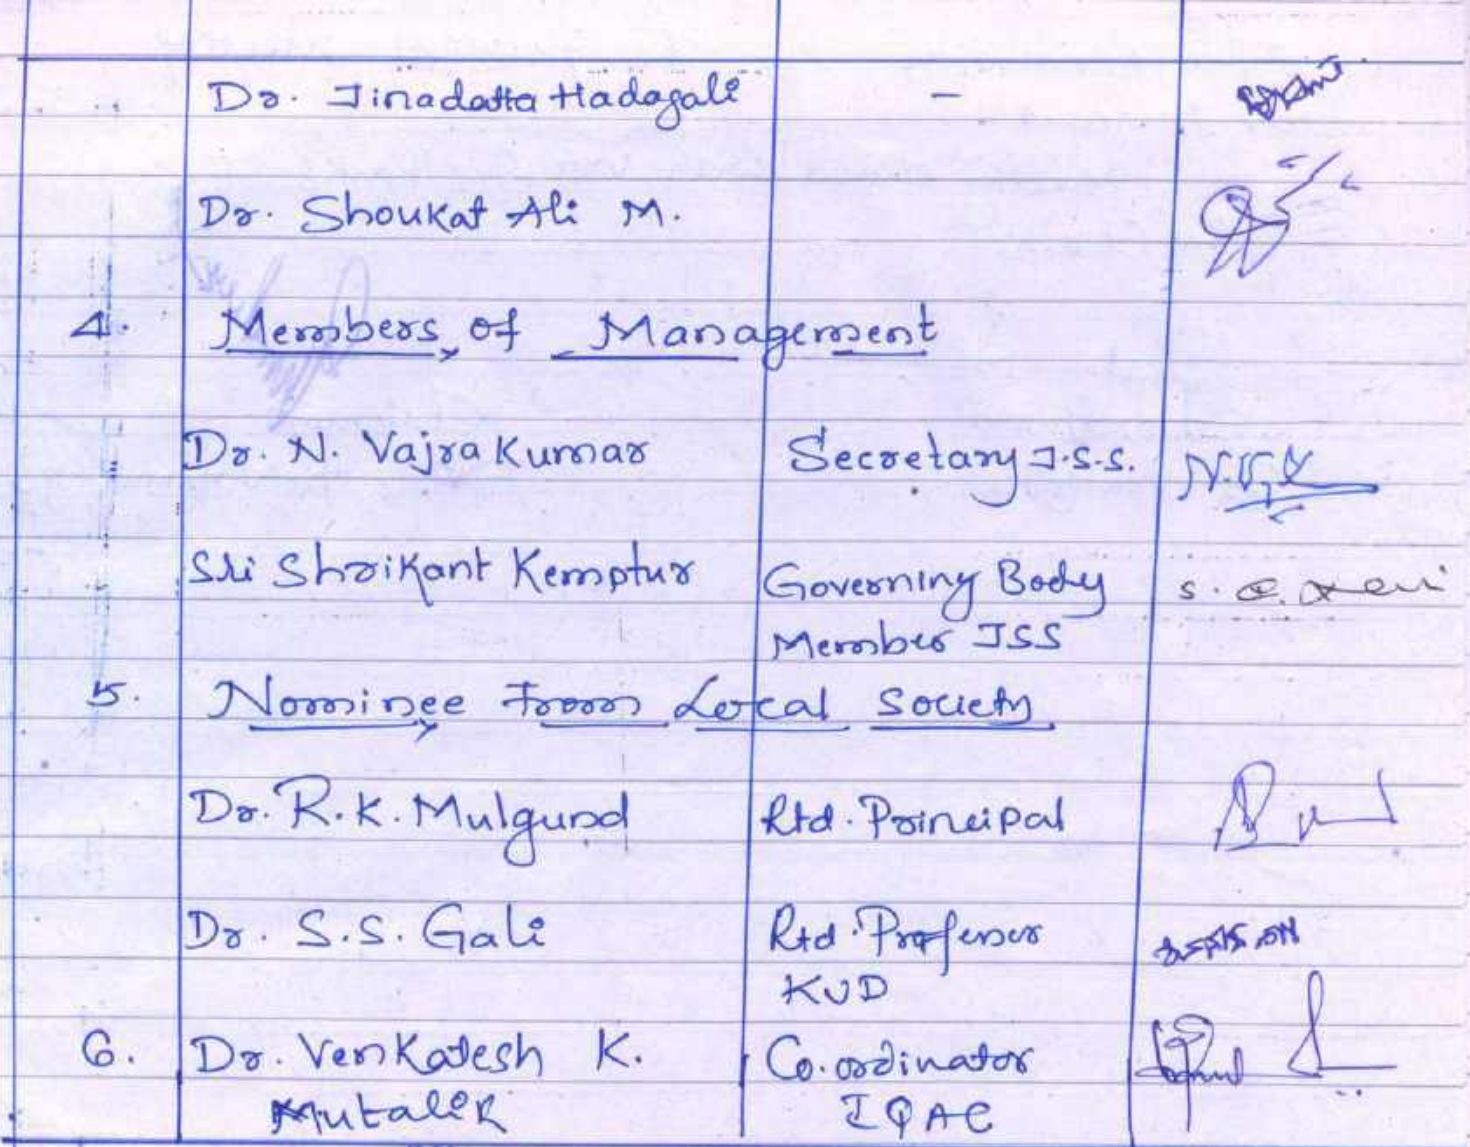 Dr. Jinadatta Hadagali -
Dr. Shoukat Ali M.
4. Members of Management
Dr. N. Vajra Kumar Secretary J.S.S. N.V.K
Sri Shrikant Kemptur Governing Body
Member JSS
5. Nominee from Local Society
Dr. R.K. Mulgund Rtd. Principal
Dr. S.S. Gali Rtd. Professor
KUD
6. Dr. Venkatesh K. Co.ordinator
Mutalik IQAC